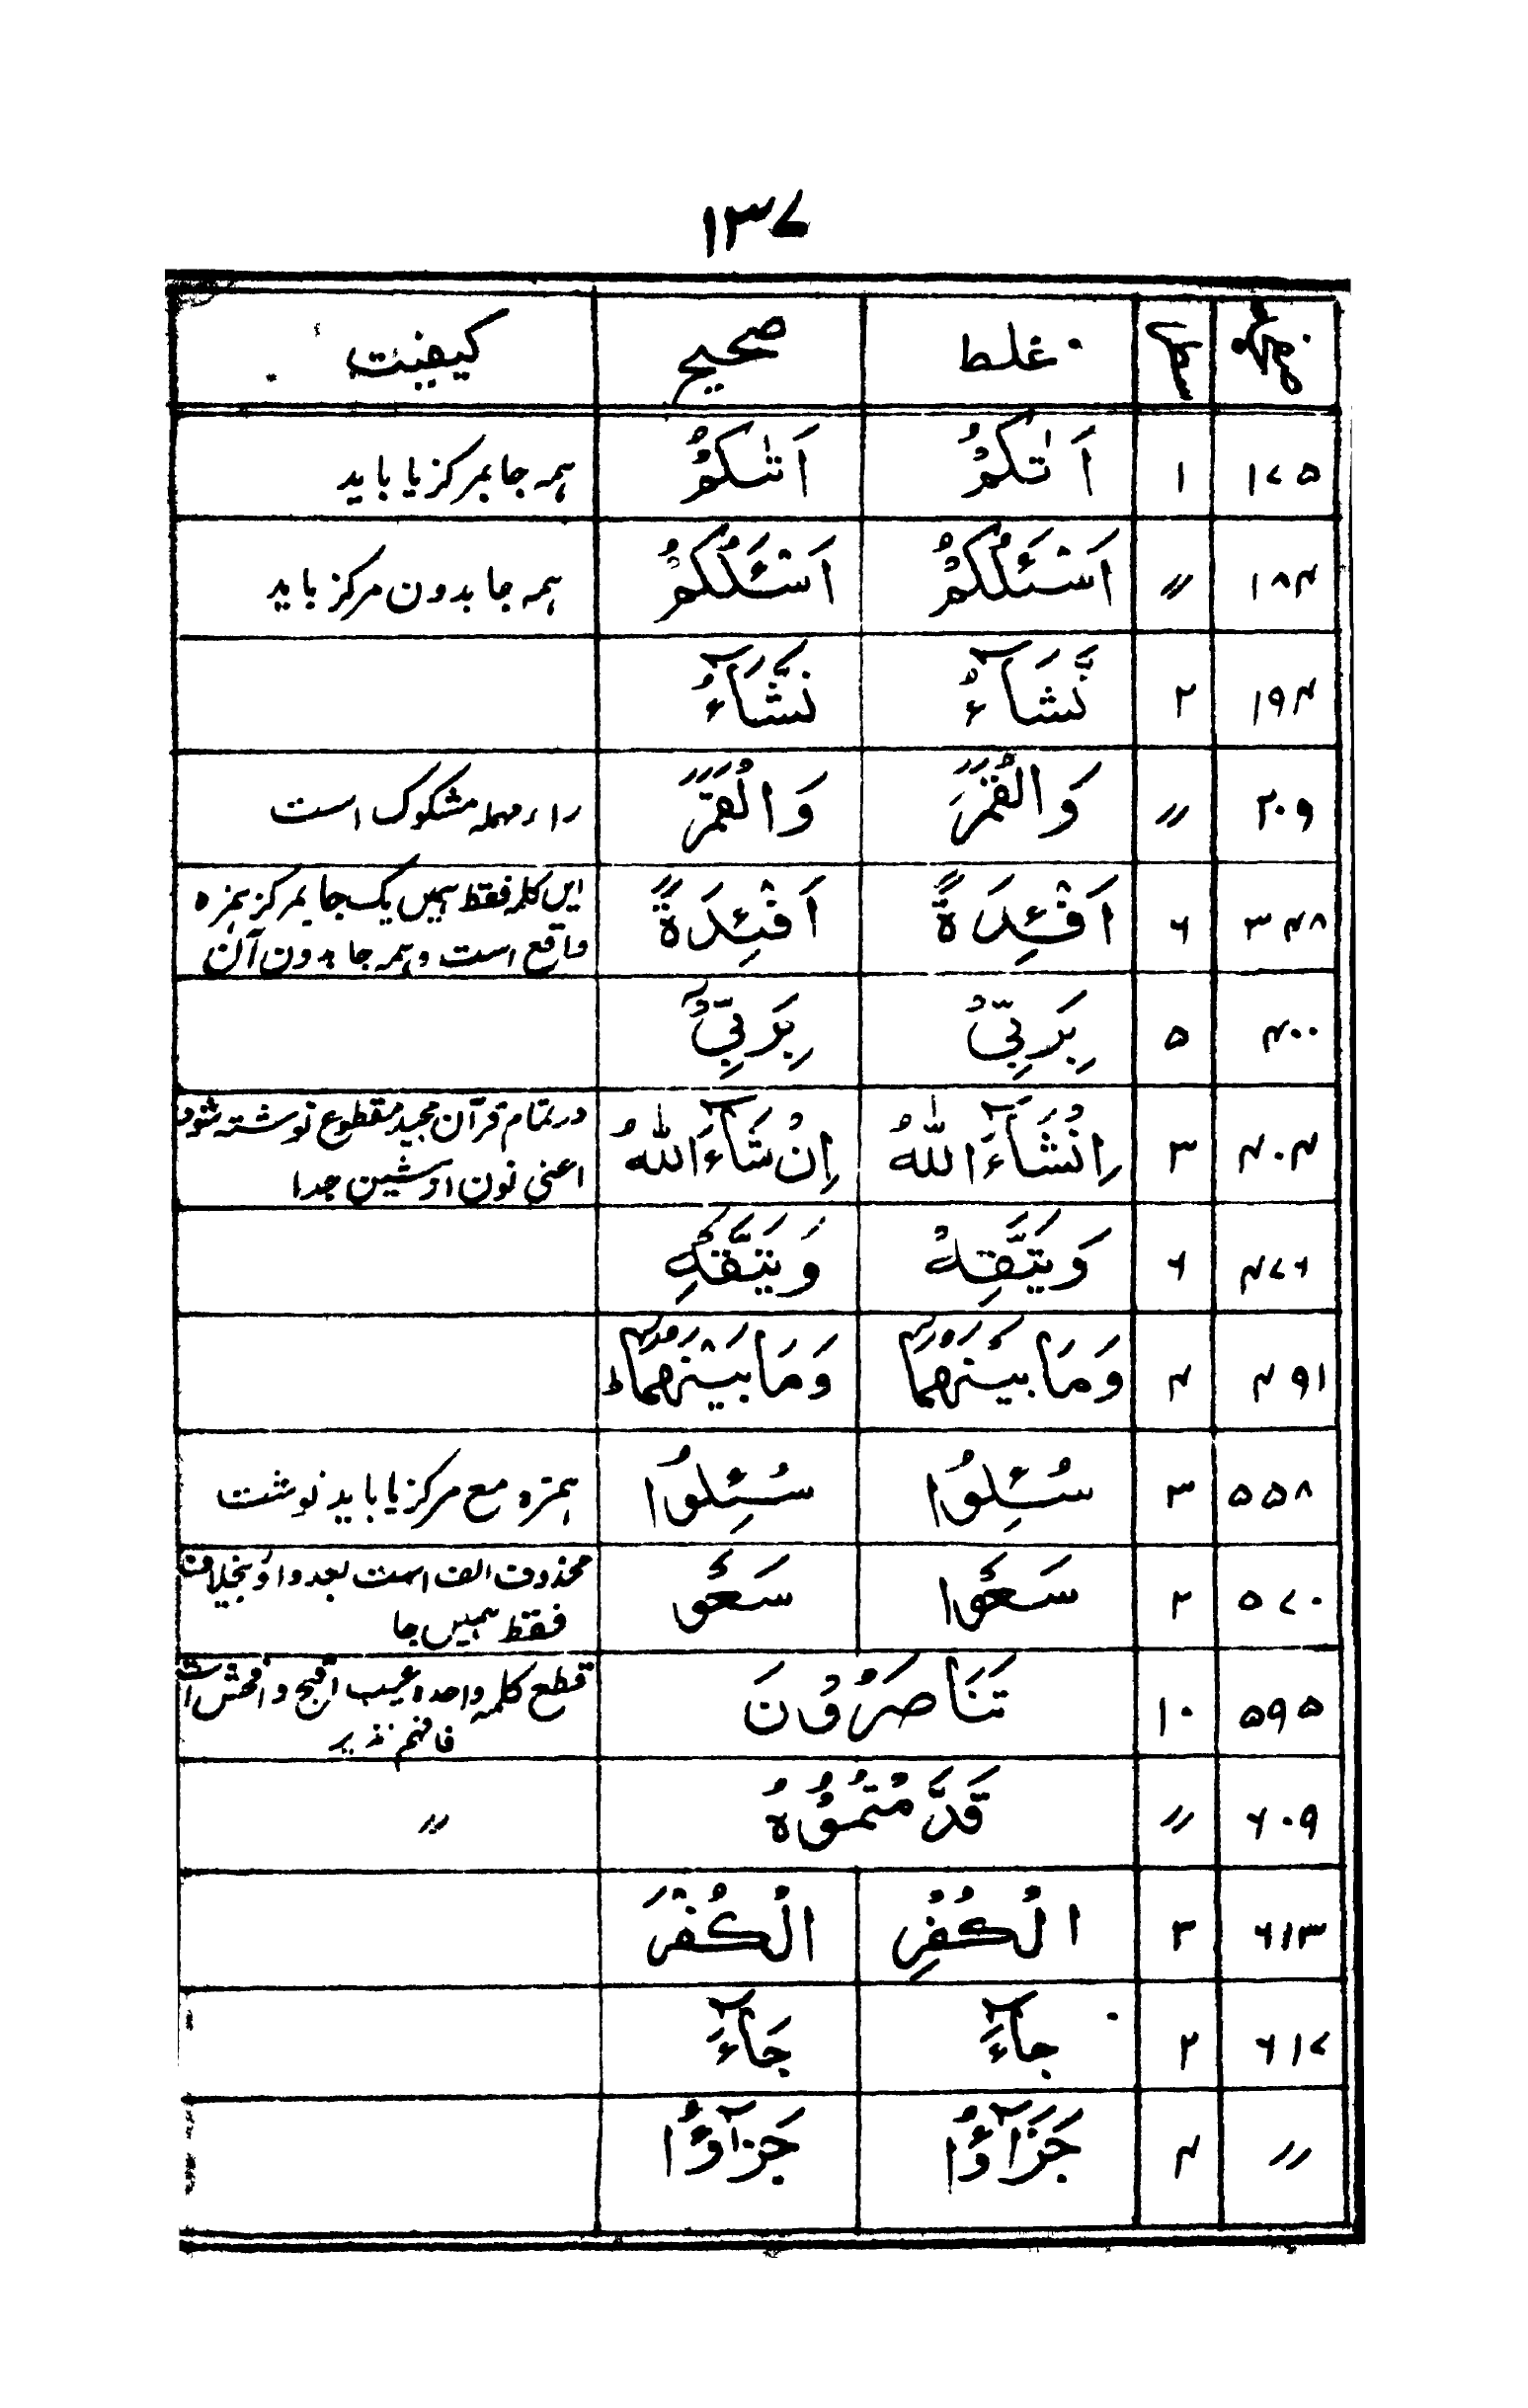 ۱۳۷
صفحہ سطر غلط صحیح کیفیت
۱۷۵ ۱ اَتٰكُمْ اَتٰىكُمْ ہمہ جا بمرکز یا باید
۱۸۴ // اَسْـَٔلُكُمْ اَسْـَٔلُكُمْ ہمہ جا بدون مرکز باید
۱۹۴ ۲ نَّشَآءُ نَشَّآءُ
۲۰۹ // وَالْقُمَّرَ وَالْقُمَّرَ راء مہملہ مشکوک است
۳۴۸ ۶ اَفْـِٕدَةً اَفْئِدَةً ایں کلمہ فقط ہمیں یک جا بمرکز ہمزہ
واقع است وہمہ جا بدون آن
۴۰۰ ۵ بِرَبِّىْ بِرَبِّىْ
۴۰۴ ۳ اِنْشَآءَ اللّٰهُ اِنْ شَآءَ اللّٰهُ در تمام قرآن مجید مقطوع نوشتہ شود
اعنی نون او شین جدا
۴۷۶ ۶ وَيَتَّقِهُ وَيَتَّقْهِ
۴۹۱ ۴ وَمَا بَيْنَهُمَا وَمَا بَيْنَهُمَا
۵۵۸ ۳ سُـِٕلُوا سُئِلُوا ہمزہ مع مرکز یا باید نوشت
۵۷۰ ۲ سَعَوْا سَعَوْ محذوف الف است بعد واؤ بخلاف
فقط ہمیں جا
۵۹۵ ۱۰ تَنَاصَرُوْنَ قطع کلمہ واحدہ عیب اقبح وافحش است
فافہم
۶۰۹ // قَدَّمْتُمُوْهُ //
۶۱۳ ۳ الْكُفْرِ الْكُفْرَ
۶۱۷ ۲ جآءَ جَآءَ
// ۴ جَزَآؤُا جَزٓاؤُا